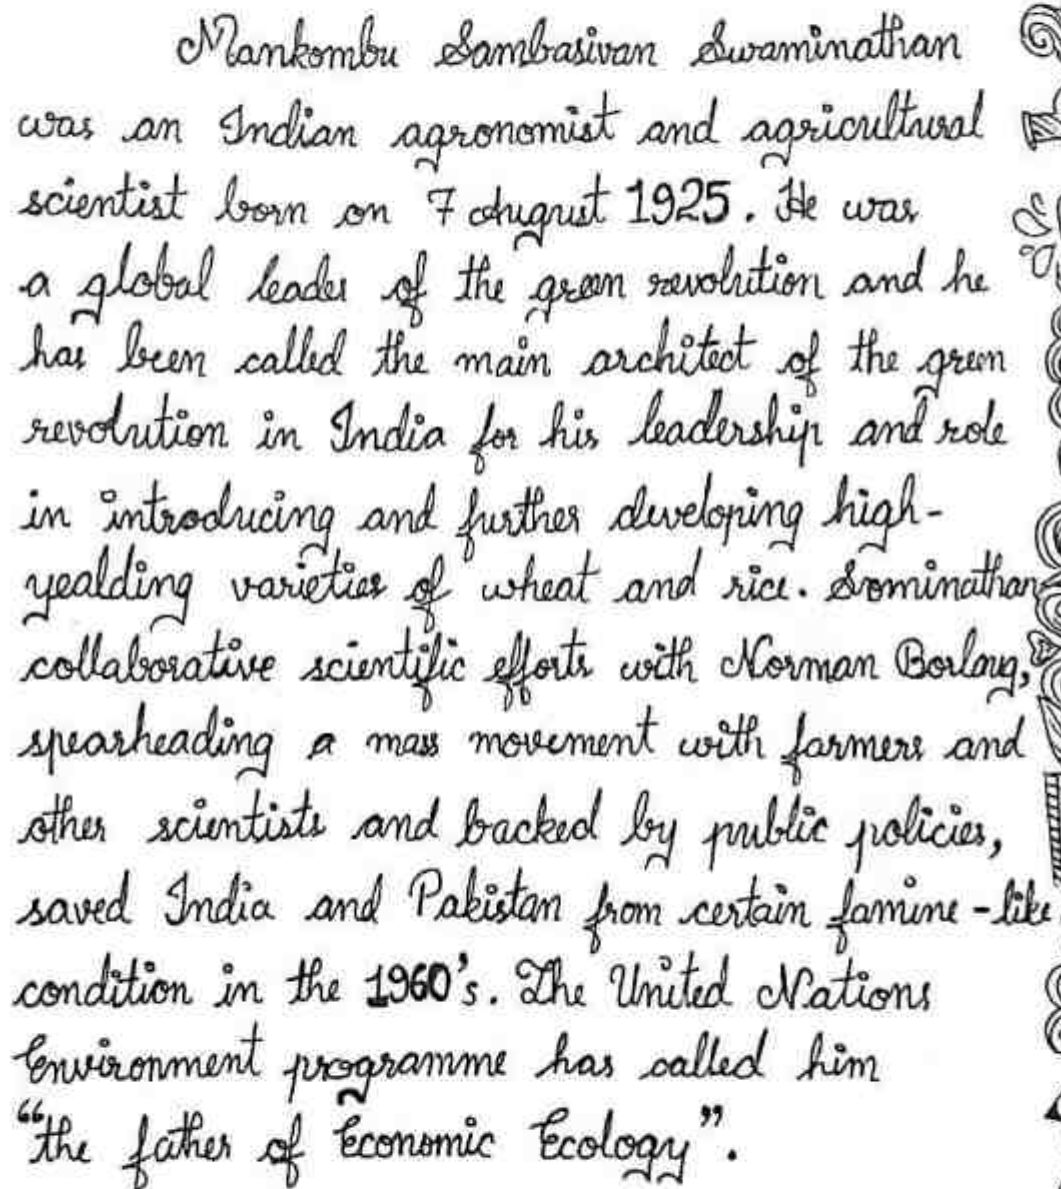 Mankombu Sambasivan Swaminathan
was an Indian agronomist and agricultural
scientist born on 7 August 1925. He was
a global leader of the green revolution and he
has been called the main architect of the green
revolution in India for his leadership and role
in introducing and further developing high-
yealding varieties of wheat and rice. Sominathan
collaborative scientific efforts with Norman Borlaug,
spearheading a mass movement with farmers and
other scientists and backed by public policies,
saved India and Pakistan from certain famine-like
condition in the 1960's. The United Nations
Environment programme has called him
“the father of Economic Ecology”.